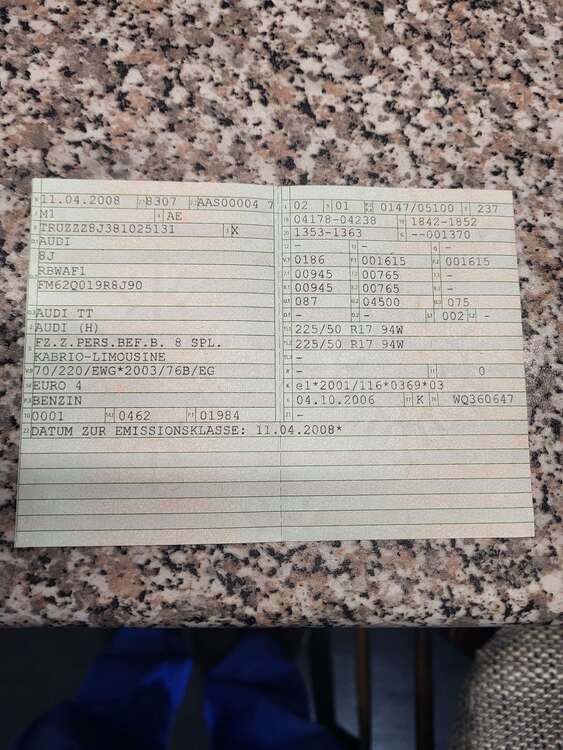 11.04.2008 8307 AAS00004 7
M1 AE
TRUZZZ8J381025131 X
AUDI
8J
RBWAF1
FM62Q019R8J90
AUDI TT
AUDI (H)
FZ.Z.PERS.BEF.B. 8 SPL.
KABRIO-LIMOUSINE
70/220/EWG*2003/76B/EG
EURO 4
BENZIN
0001 0462 01984
DATUM ZUR EMISSIONSKLASSE: 11.04.2008*
02 01 0147/05100 237
04178-04238 1842-1852
1353-1363 --001370
- - -
0186 001615 001615
00945 00765
00945 00765
087 04500 075
- - 002 -
225/50 R17 94W
225/50 R17 94W
-
- 0
e1*2001/116*0369*03
04.10.2006 K WQ360647
-